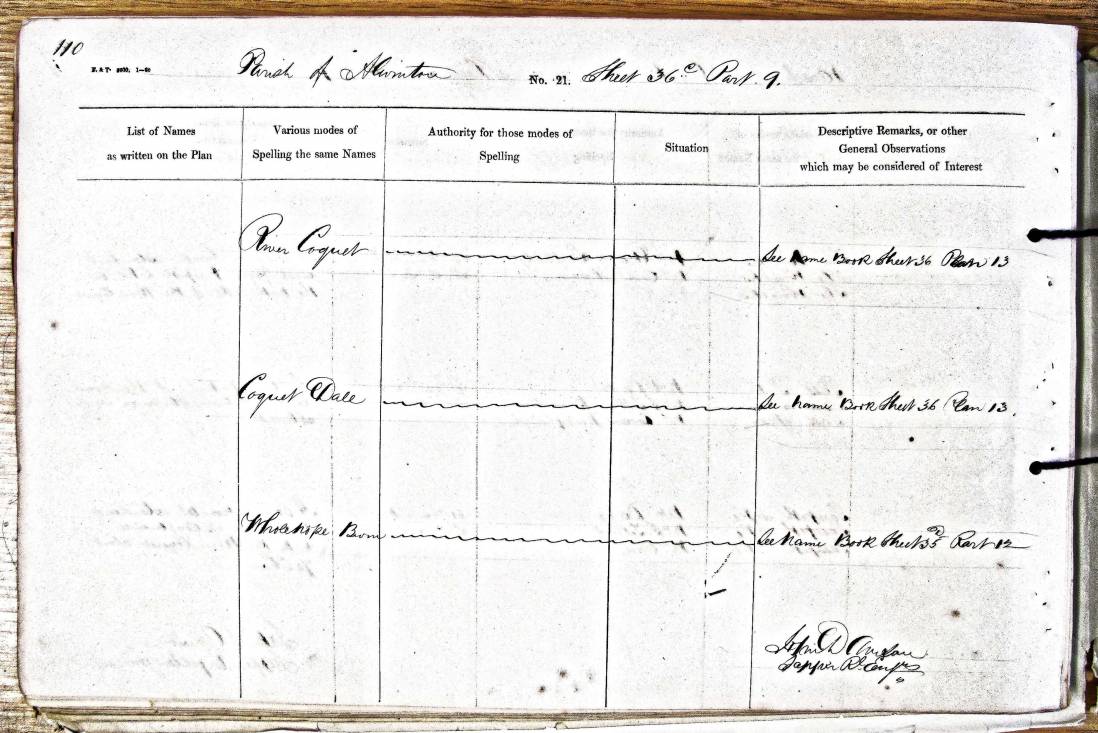 110
Parish of Alwinton No. 21. Sheet 36 c Part 9.
List of Names
as written on the Plan
Various modes of
Spelling the same Names
Authority for those modes of
Spelling
Situation
Descriptive Remarks, or other
General Observations
which may be considered of Interest
River Coquet See Name Book Sheet 36 Plan 13
Coquet Dale See Name Book Sheet 36 Plan 13.
Wholehope Burn See Name Book Sheet 35 Part 12
John D
Sapper Rl. Engrs